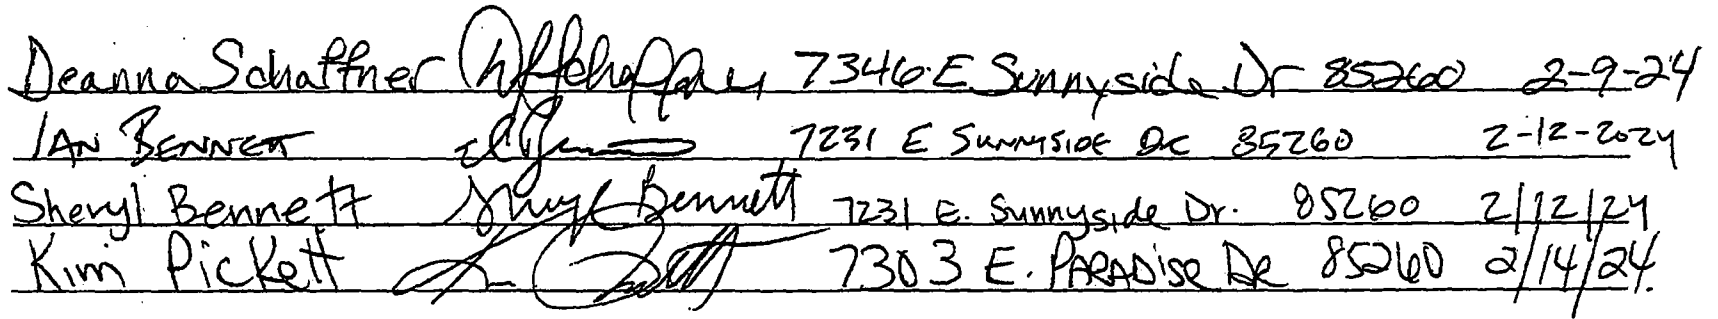 Deanna Schaffner DSchaffner 7346 E Sunnyside Dr 85260 2-9-24
IAN BENNETT 7231 E SUNNYSIDE DR 85260 2-12-2024
Sheryl Bennett Sheryl Bennett 7231 E. Sunnyside Dr. 85260 2/12/24
Kim Pickett 7303 E. PARADISE DR 85260 2/14/24